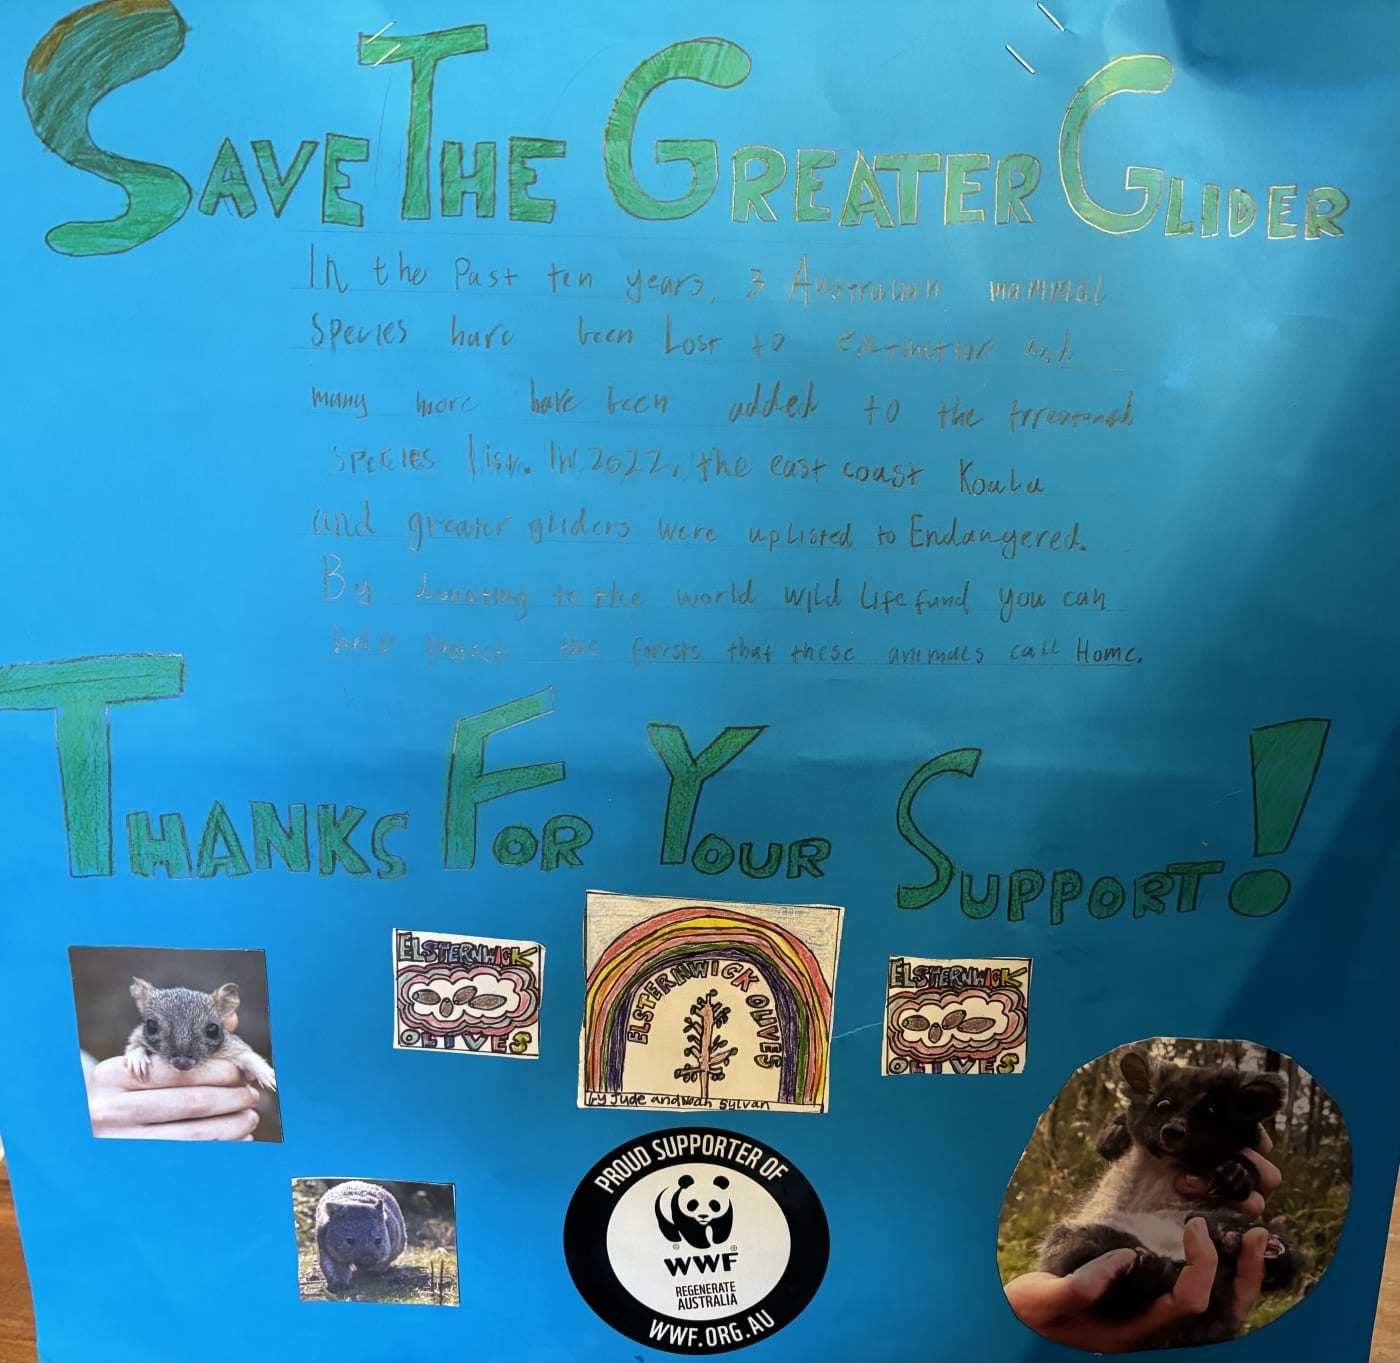 SAVE THE GREATER GLIDER
In the Past ten years, 3 Australian mammal
species have been Lost to extinction and
many more have been added to the treatened
species list. IN 2022, the east coast Koala
and greater gliders were uplisted to Endangered.
By donating to the world wild life fund you can
help protect the forests that these animals call Home.
THANKS FOR YOUR SUPPORT!
ELSTERNWICK
OLIVES
ELSTERNWICK OLIVES
by Jude and Noah Sylvan
ELSTERNWICK
OLIVES
PROUD SUPPORTER OF
© WWF ®
REGENERATE
AUSTRALIA
WWF.ORG.AU